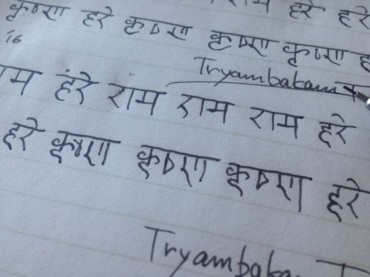 राम हरे हरे
कृष्णा हरे कृष्णा कृष्णा कृष्णा
16
Tryambakam
राम हरे राम राम राम हरे
हरे कृष्णा कृष्णा कृष्णा हरे
Tryambakam